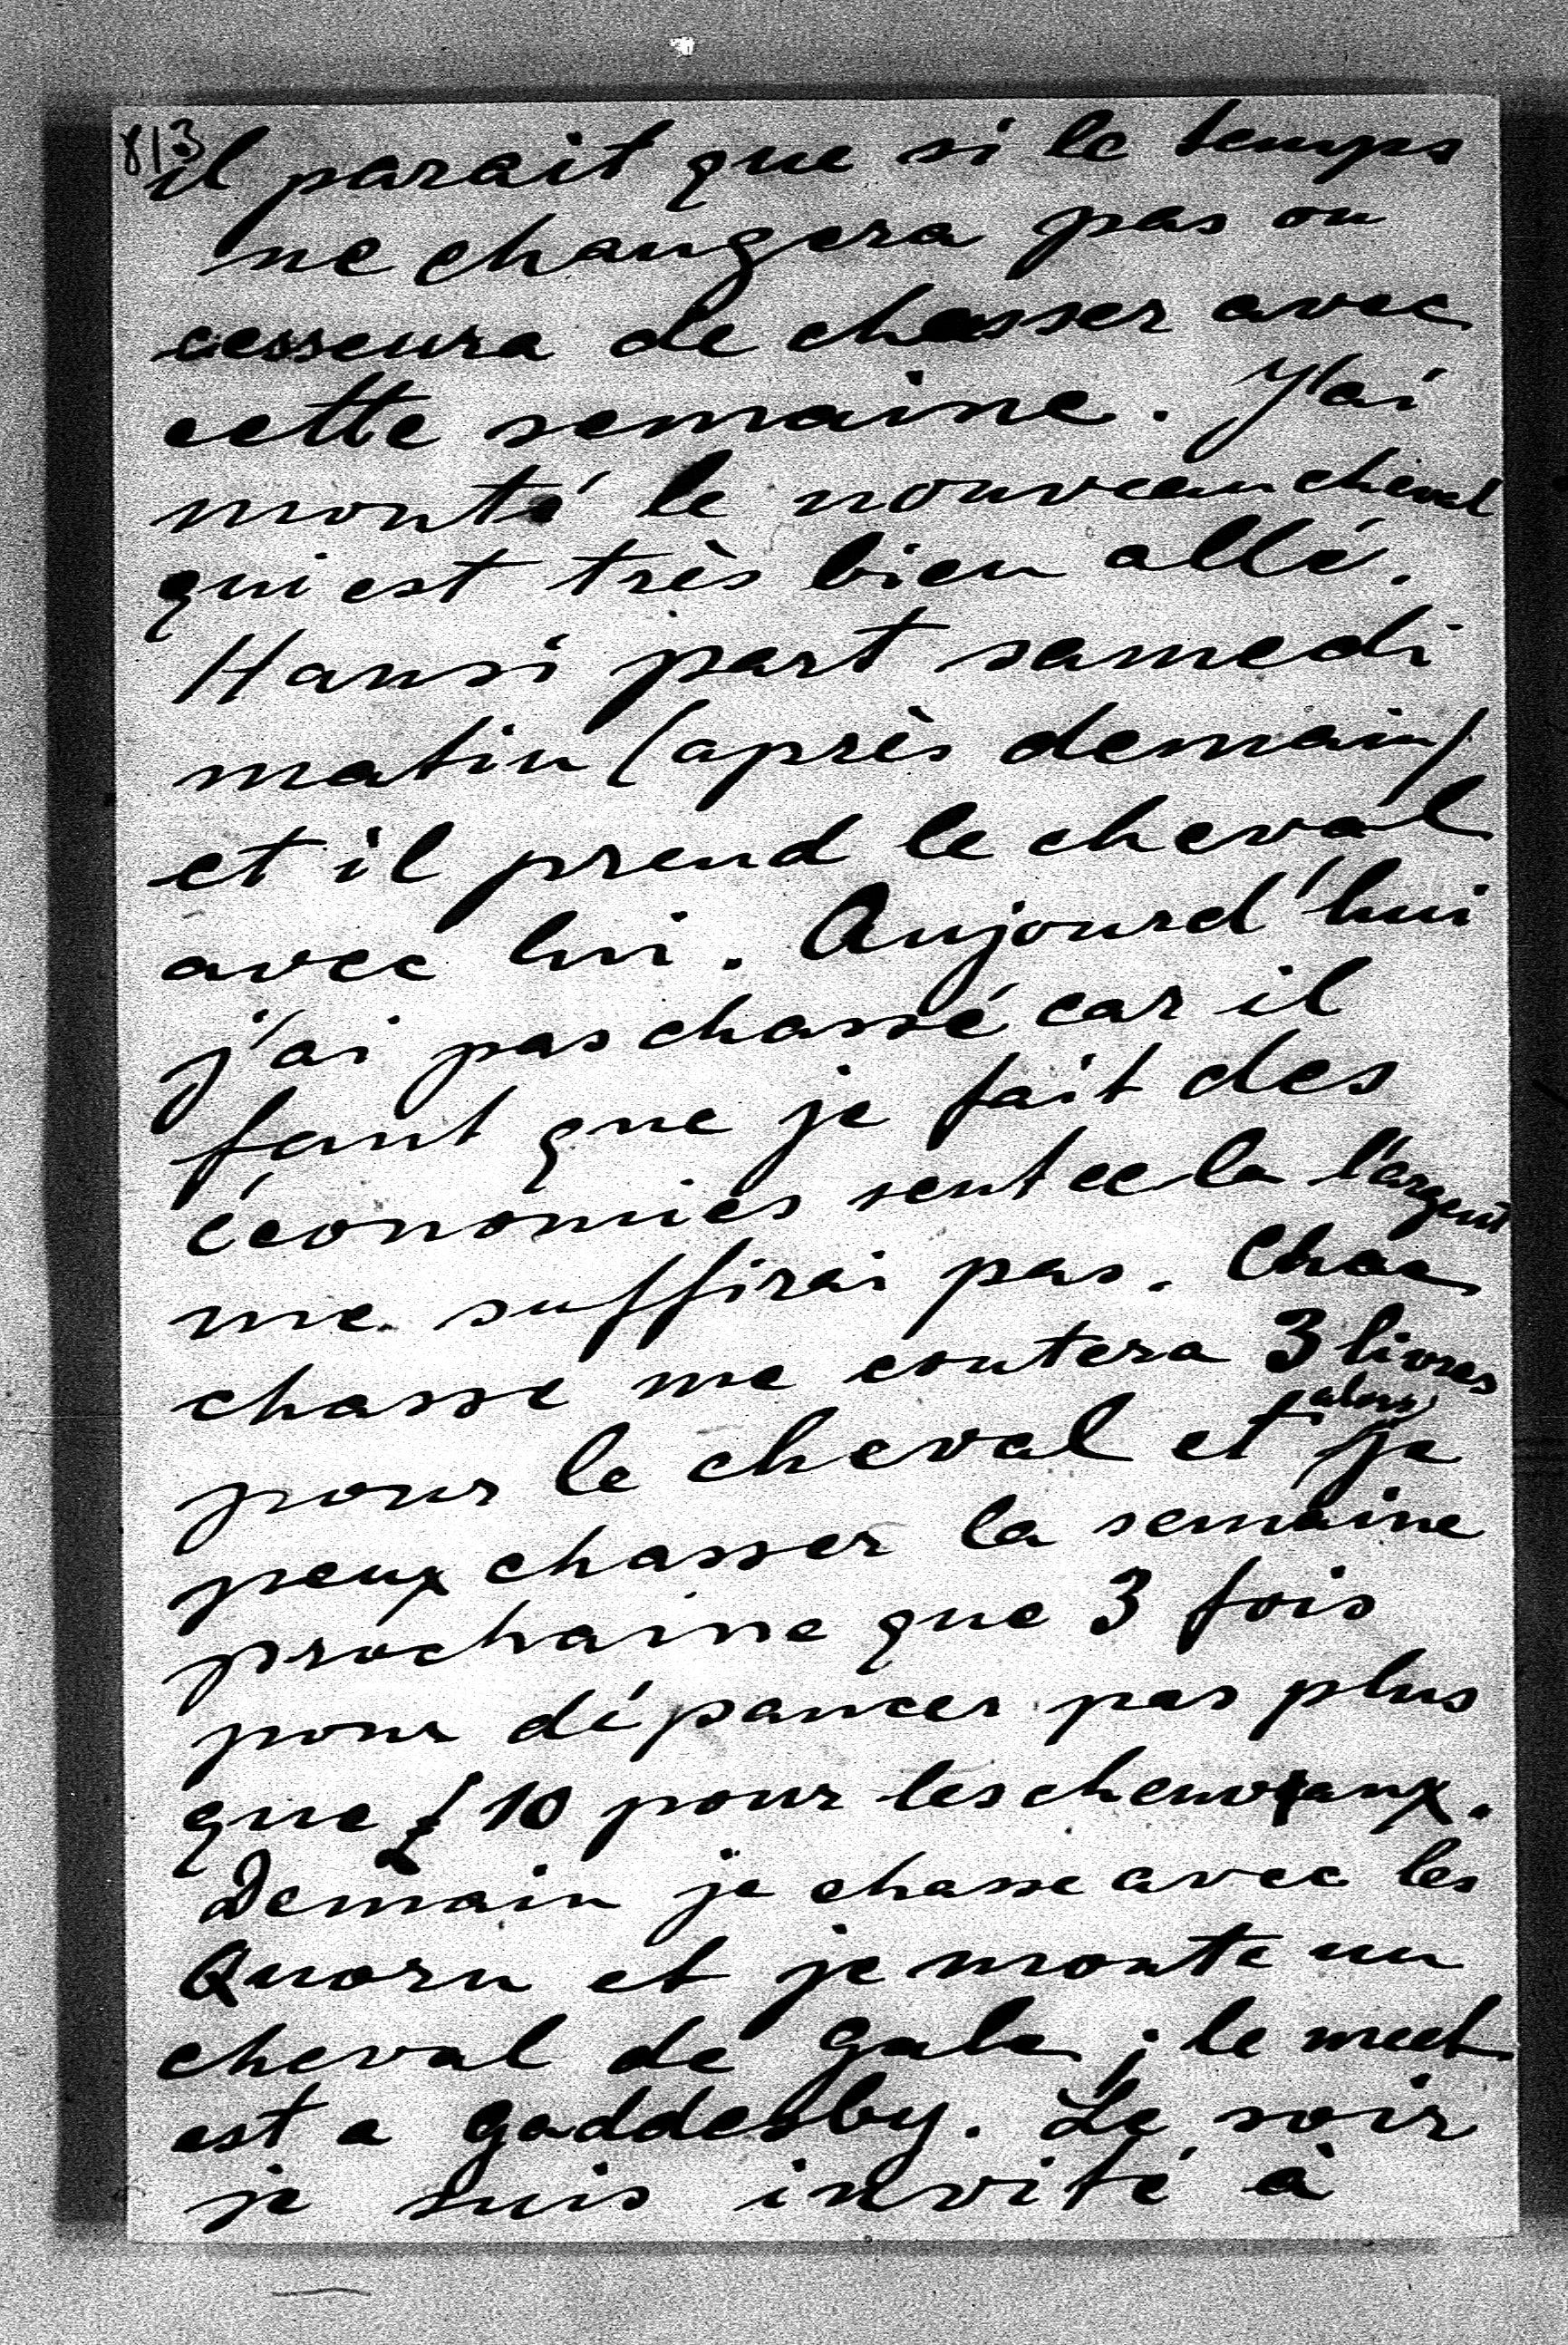 813
il parait que si le temps
ne changera pas on
cesseura de chasser avec
cette semaine. J'ai
monté le nouveau cheval
qui est très bien allé.
Hansi part samedi
matin (après demain)
et il prend le cheval
avec lui. Aujourd'hui
j'ai pas chassé car il
faut que je fait des
économies sent cela l'argent
me suffirai pas. Chac
chasse me coutera 3 livres
pour le cheval et alors je
peux chasser la semaine
prochaine que 3 fois
pour dépancer pas plus
que £10 pour les cheuveaux.
Demain je chasse avec les
Quorn et je monte un
cheval de Gale; le meet
est a Gaddesby. Le soir
je suis invité à